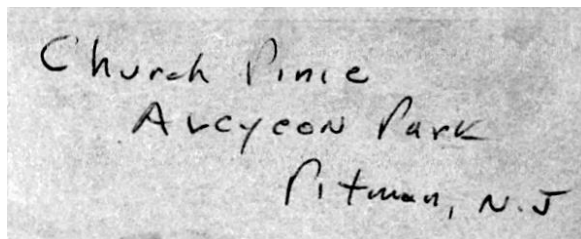 Church Picnic
Alcyeon Park
Pitman, N.J